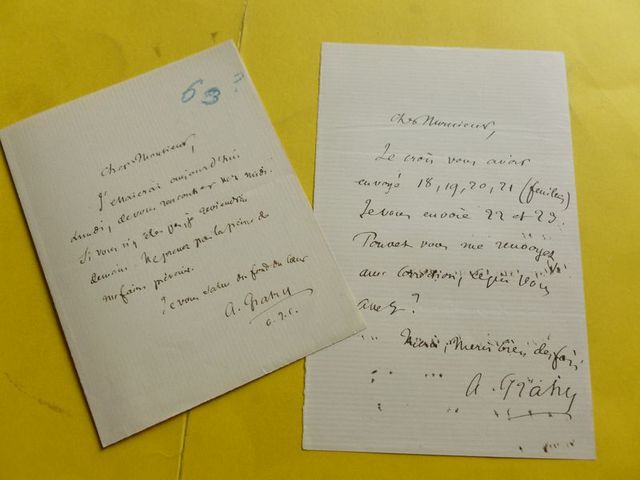 63?
Cher Monsieur,
J'essaierai aujourd'hui
Lundi, de vous rencontrer vers midi.
Si vous n'y êtes pas je reviendrai
demain. Ne prenez pas la peine de
me faire prévenir.
Je vous salue du fond du cœur
A. Gratry
Cher Monsieur,
Je crois vous avoir
envoyé 18, 19, 20, 21 (feuilles)
Je vous envoie 22 et 23.
Pouvez vous me renvoyer
avec correction, ce que vous
avez?
Merci, merci bien des fois
A. Gratry